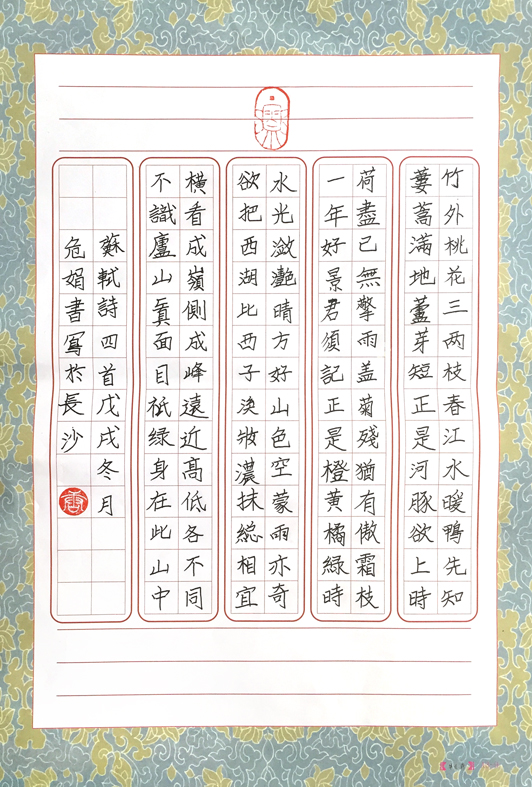 竹外桃花三两枝春江水暖鴨先知
蔞蒿滿地蘆芽短正是河豚欲上時
荷盡已無擎雨盖菊殘猶有傲霜枝
一年好景君須記正是橙黃橘綠時
水光潋灧晴方好山色空蒙雨亦奇
欲把西湖比西子淡妝濃抹總相宜
橫看成嶺側成峰遠近高低各不同
不識廬山真面目祗緣身在此山中
蘇軾詩四首戊戌冬月
危娟書寫於長沙